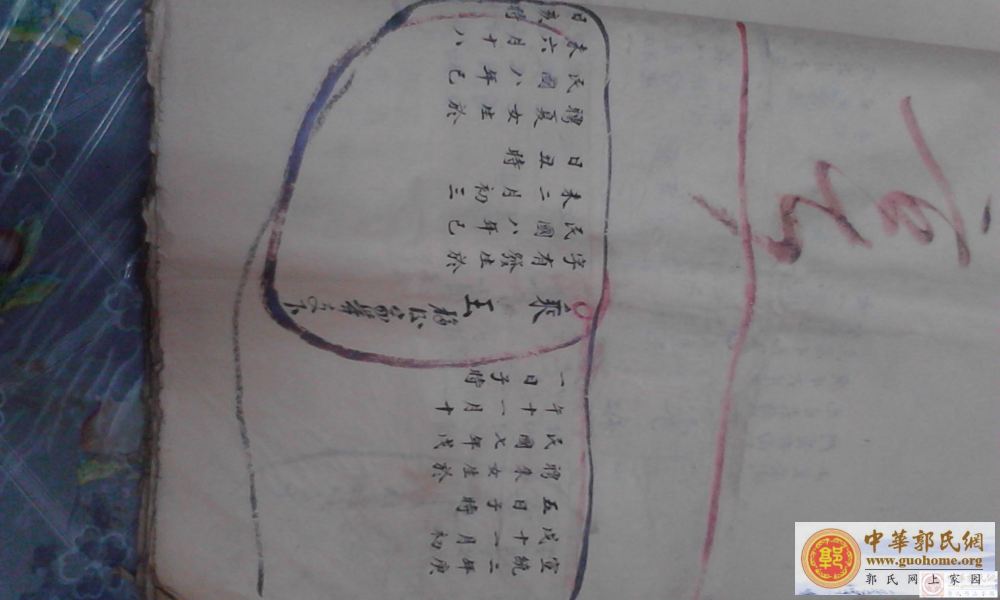 宣統二年庚
戌十一月初
五日子時
聘朱女生於
民國七年戊
午十一月十
一日子時
乘玉
字有發生於
民國八年己
未二月初三
日丑時
聘夏女生於
民國八年己
未六月十八
日亥時
中華郭氏網
www.guohome.org
郭氏网上家园